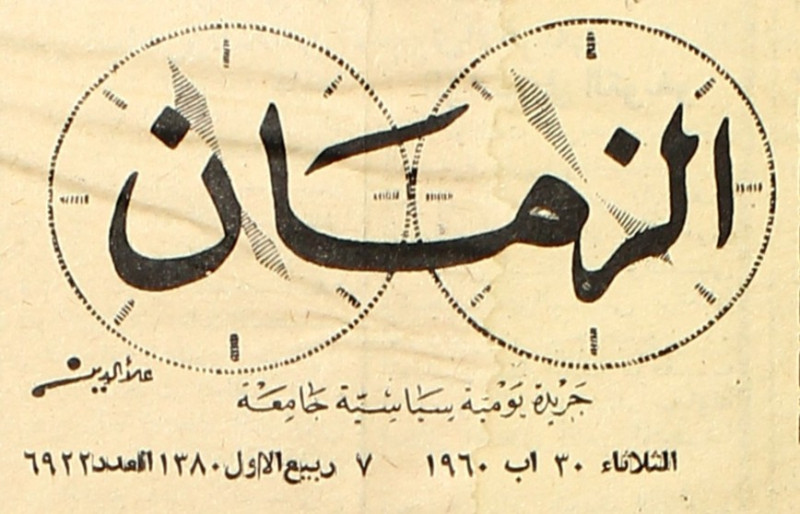 الزمان
علاءالدين
جريدة يومية سياسية جامعة
الثلاثاء ٣٠ اب ١٩٦٠ ٧ ربيع الاول ١٣٨٠ العدد ٦٩٢٢